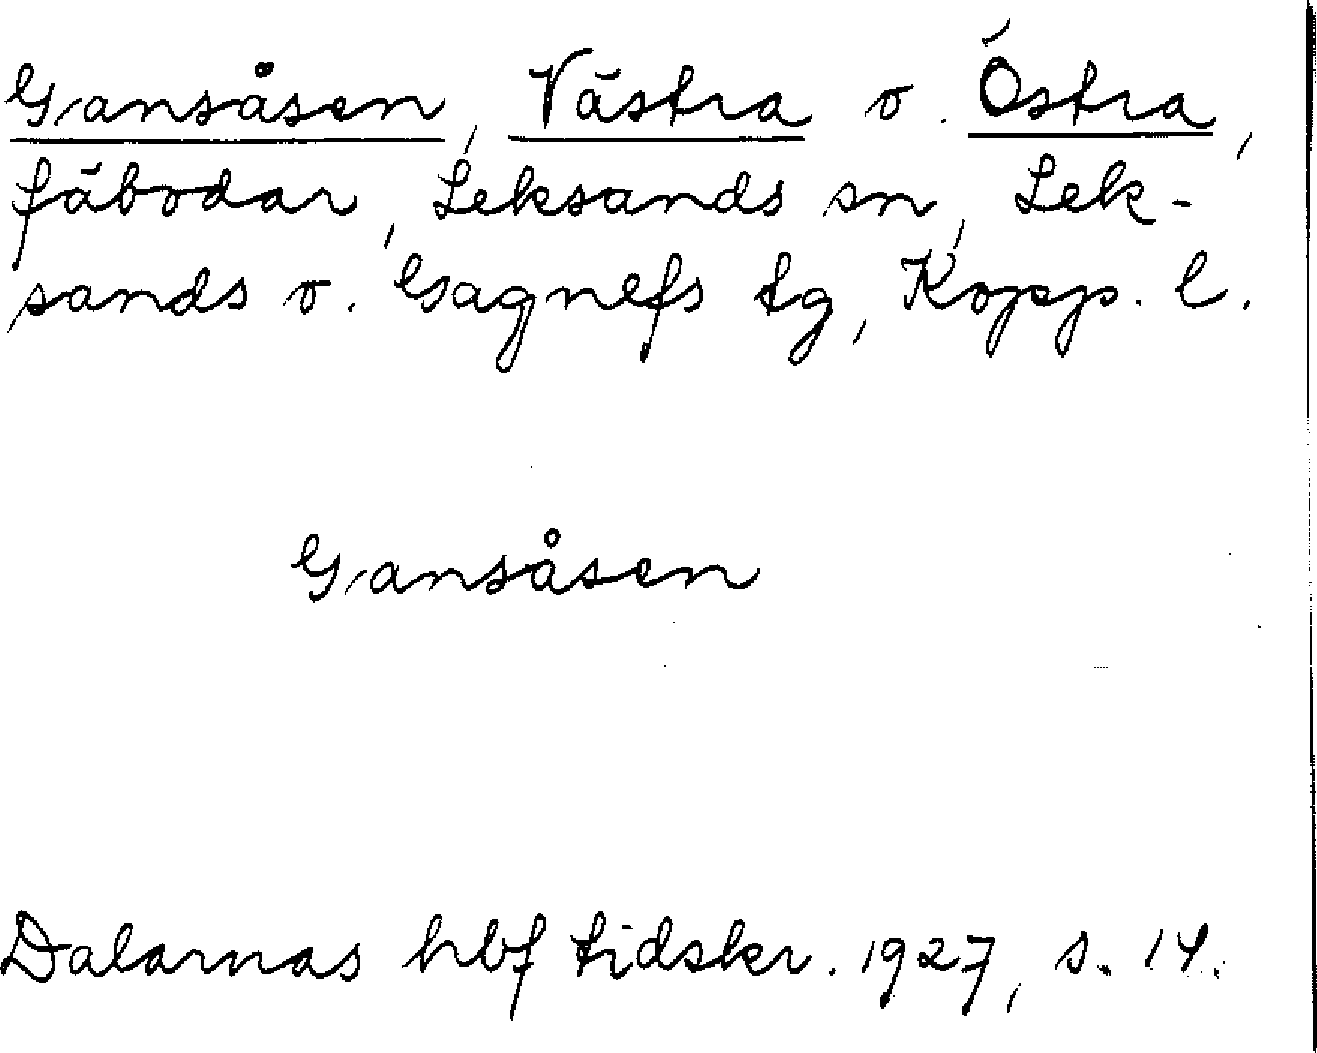 Gansåsen, Västra o. Östra,
fäbodar, Leksands sn, Lek-
sands o. Gagnefs tg, Kopp. l.
Gansåsen
Dalarnas hbf tidskr. 1927, s. 14.